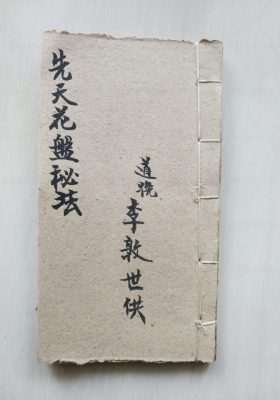 先天花盤秘法
道
李敦世供